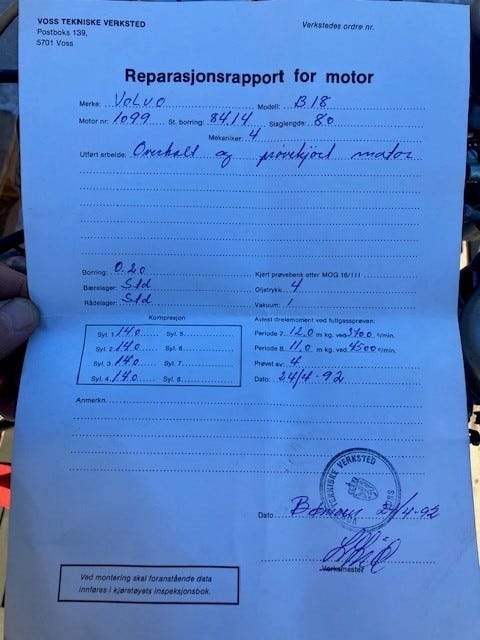 VOSS TEKNISKE VERKSTED
Postboks 139,
5701 Voss
Verkstedes ordre nr.
Reparasjonsrapport for motor
Merke: VOLVO Modell: B18
Motor nr: 1099 St. borring: 8414 Slaglengde: 80
Mekaniker: 4
Utført arbeide: Overhalt og prøvekjørt motor
Borring: 0.20 Kjørt prøvebenk etter MOG 16/111
Bærelager: Std Oljetrykk: 4
Rådelager: Std Vakuum: 1
Kompresjon Avlest dreiemoment ved fullgassprøven:
Syl. 1 140 Syl. 5 Periode 7: 12.0 m kg. ved 3400 o/min.
Syl. 2 140 Syl. 6 Periode 8: 11.0 m kg. ved 4500 o/min.
Syl. 3 140 Syl. 7 Prøvet av: 4
Syl. 4 140 Syl. 8 Dato: 24/4-92
Anmerkn.
TEKNISKE VERKSTED
VOSS
Dato 24/4-92
Verksmester
Ved montering skal foranstående data
innføres i kjøretøyets inspeksjonsbok.